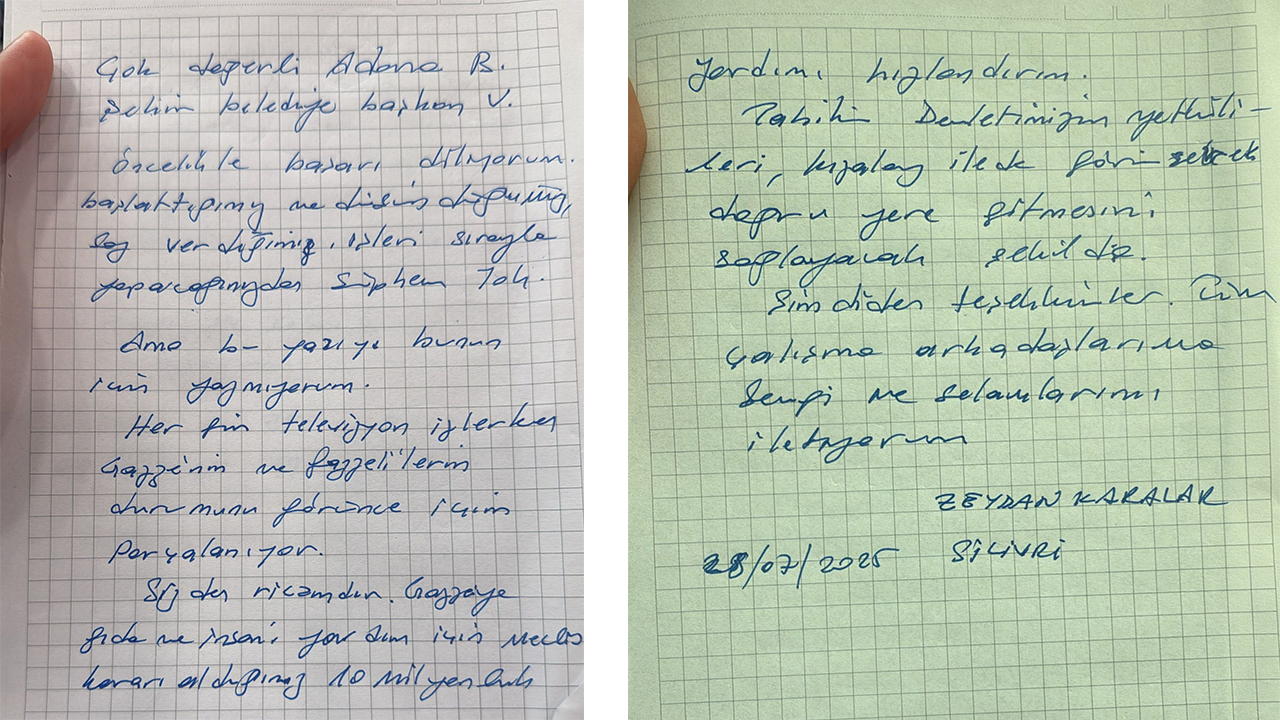 Çok değerli Adana B.
Şehir belediye başkan V.
Öncelikle başarı diliyorum.
başlattığımız ve düşündüğümüz,
Söz verdiğimiz işleri sırayla
yapacağınızdan Şüphem Yok.
Ama bu yazıyı bunun
için yazmıyorum.
Her gün televizyon izlerken
Gazze'nin ve Gazzeli'lerin
durumunu görünce içim
Parçalanıyor.
Sizden ricamdır. Gazzeye
gıda ve insani yardım için Meclis
kararı aldığımız 10 Milyonluk
Yardımı hızlandırın.
Tabiki Devletimizin yetkili-
leri, kızılay ile de görüşerek
doğru yere gitmesini
sağlayacak şekilde.
Şimdiden teşekkürler. Tüm
çalışma arkadaşlarıma
Sevgi ve selamlarımı
iletiyorum
ZEYDAN KARALAR
28/07/2025 SİLİVRİ